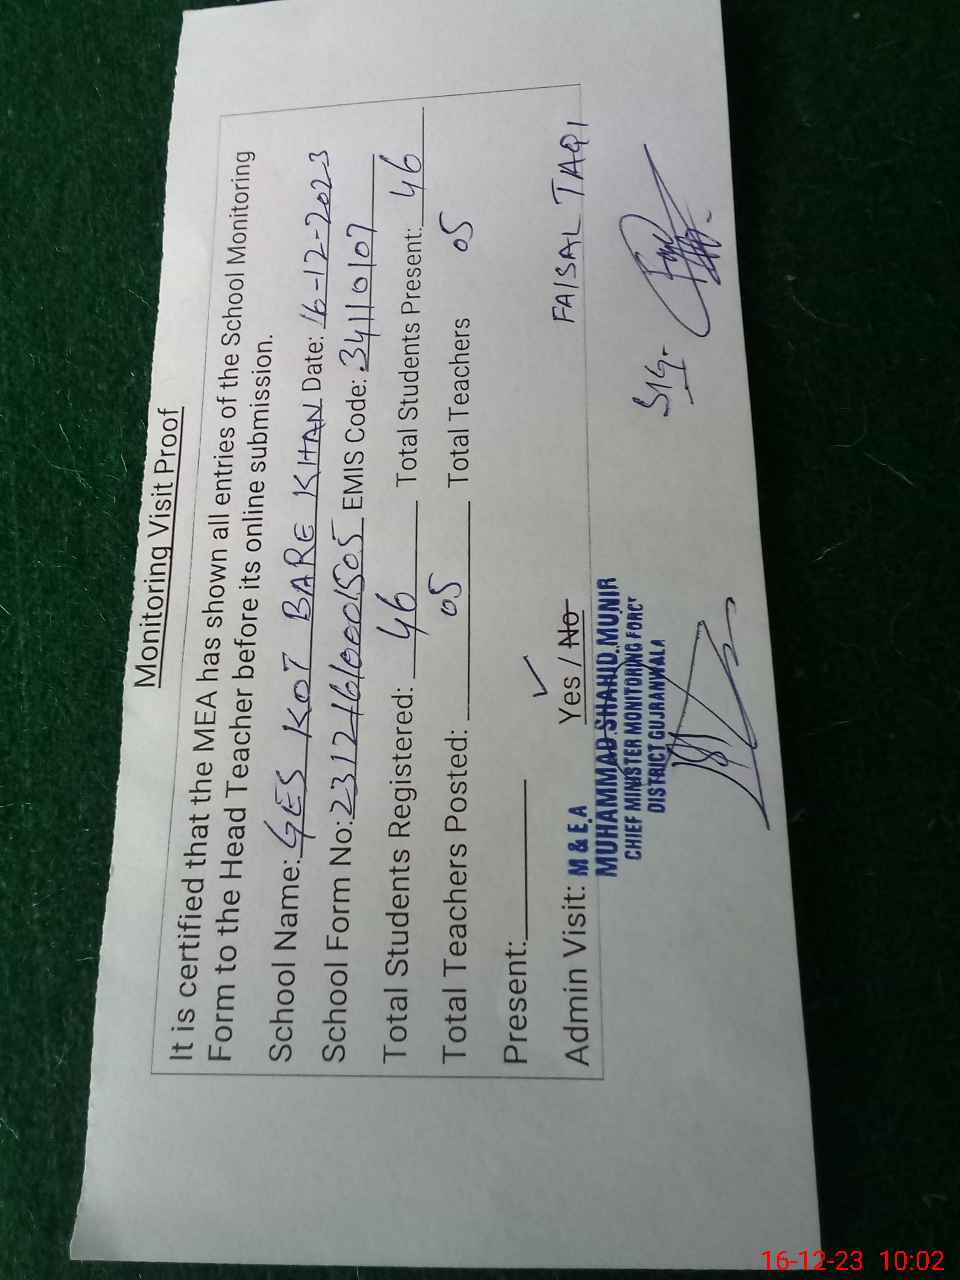 Monitoring Visit Proof
It is certified that the MEA has shown all entries of the School Monitoring
Form to the Head Teacher before its online submission.
School Name: GES KOT BARE KHAN Date: 16-12-2023
School Form No: 231216160001505 EMIS Code: 34110107
Total Students Registered: 46 Total Students Present: 46
Total Teachers Posted: 05 Total Teachers 05
Present:
Admin Visit: Yes / No FAISAL TAQI
M & E.A
MUHAMMAD SHAHID MUNIR
CHIEF MINISTER MONITORING FORCE
DISTRICT GUJRANWALA
SIG.
16-12-23 10:02